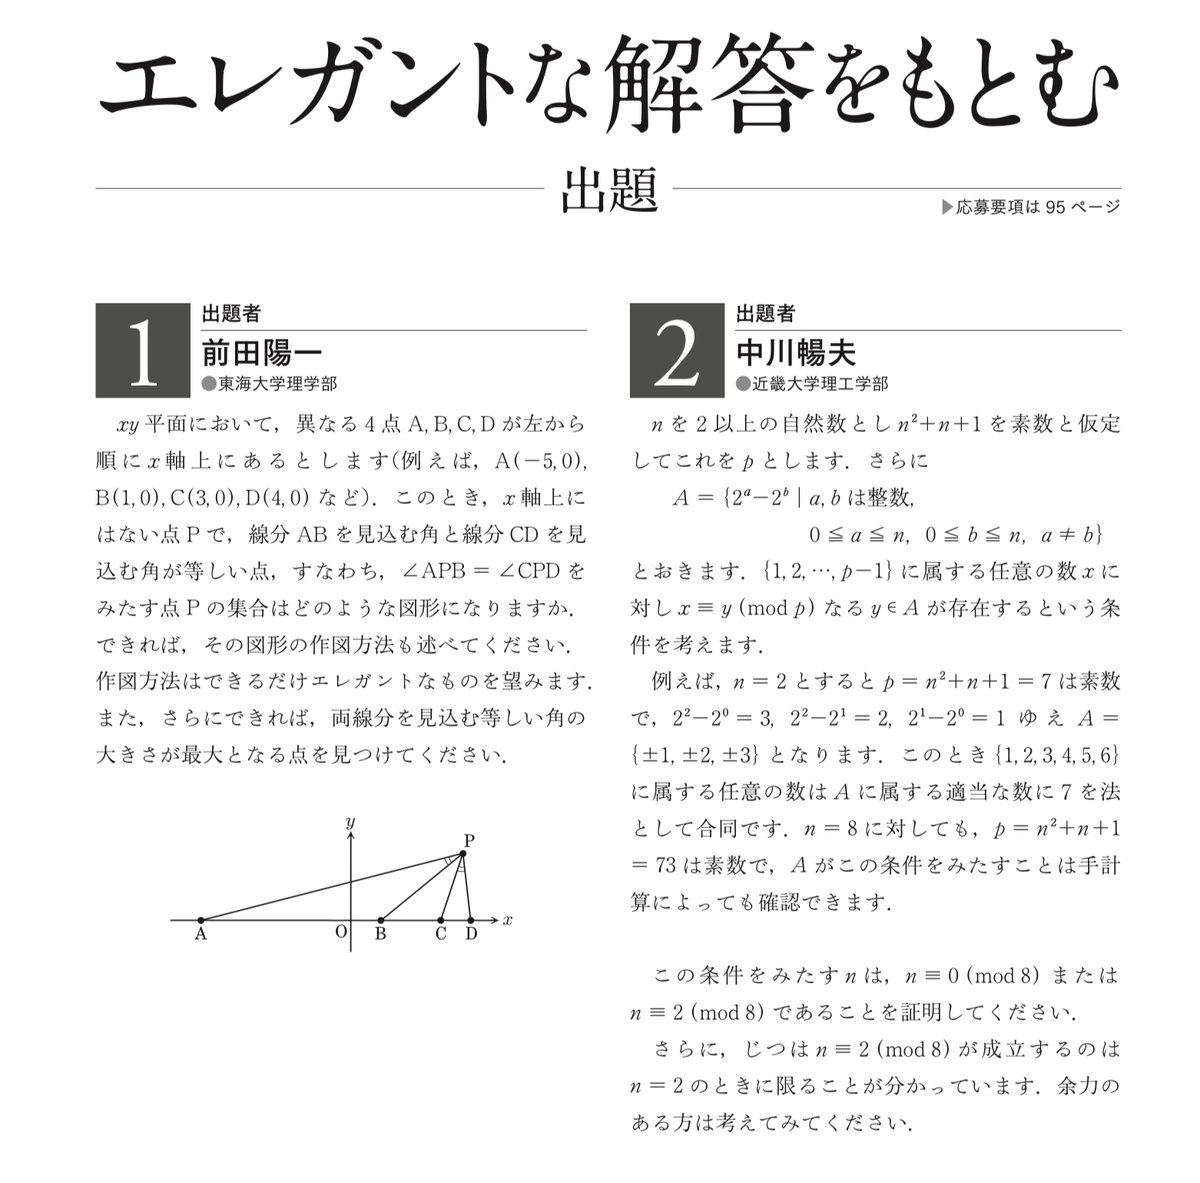 エレガントな解答をもとむ
出題
▶応募要項は 95 ページ
1
出題者
前田陽一
●東海大学理学部
xy 平面において，異なる 4 点 A, B, C, D が左から
順に x 軸上にあるとします(例えば，A(−5, 0),
B(1, 0), C(3, 0), D(4, 0) など)．このとき，x 軸上に
はない点 P で，線分 AB を見込む角と線分 CD を見
込む角が等しい点，すなわち，∠APB = ∠CPD を
みたす点 P の集合はどのような図形になりますか．
できれば，その図形の作図方法も述べてください．
作図方法はできるだけエレガントなものを望みます．
また，さらにできれば，両線分を見込む等しい角の
大きさが最大となる点を見つけてください．
y
P
A
O
B
C
D
x
2
出題者
中川暢夫
●近畿大学理工学部
n を 2 以上の自然数とし n²+n+1 を素数と仮定
してこれを p とします．さらに
A = {2ᵃ−2ᵇ | a, b は整数,
0 ≦ a ≦ n, 0 ≦ b ≦ n, a ≠ b}
とおきます．{1, 2, …, p−1} に属する任意の数 x に
対し x ≡ y (mod p) なる y ∈ A が存在するという条
件を考えます．
例えば，n = 2 とすると p = n²+n+1 = 7 は素数
で，2²−2⁰ = 3, 2²−2¹ = 2, 2¹−2⁰ = 1 ゆえ A =
{±1, ±2, ±3} となります．このとき {1, 2, 3, 4, 5, 6}
に属する任意の数は A に属する適当な数に 7 を法
として合同です．n = 8 に対しても，p = n²+n+1
= 73 は素数で，A がこの条件をみたすことは手計
算によっても確認できます．
この条件をみたす n は，n ≡ 0 (mod 8) または
n ≡ 2 (mod 8) であることを証明してください．
さらに，じつは n ≡ 2 (mod 8) が成立するのは
n = 2 のときに限ることが分かっています．余力の
ある方は考えてみてください．